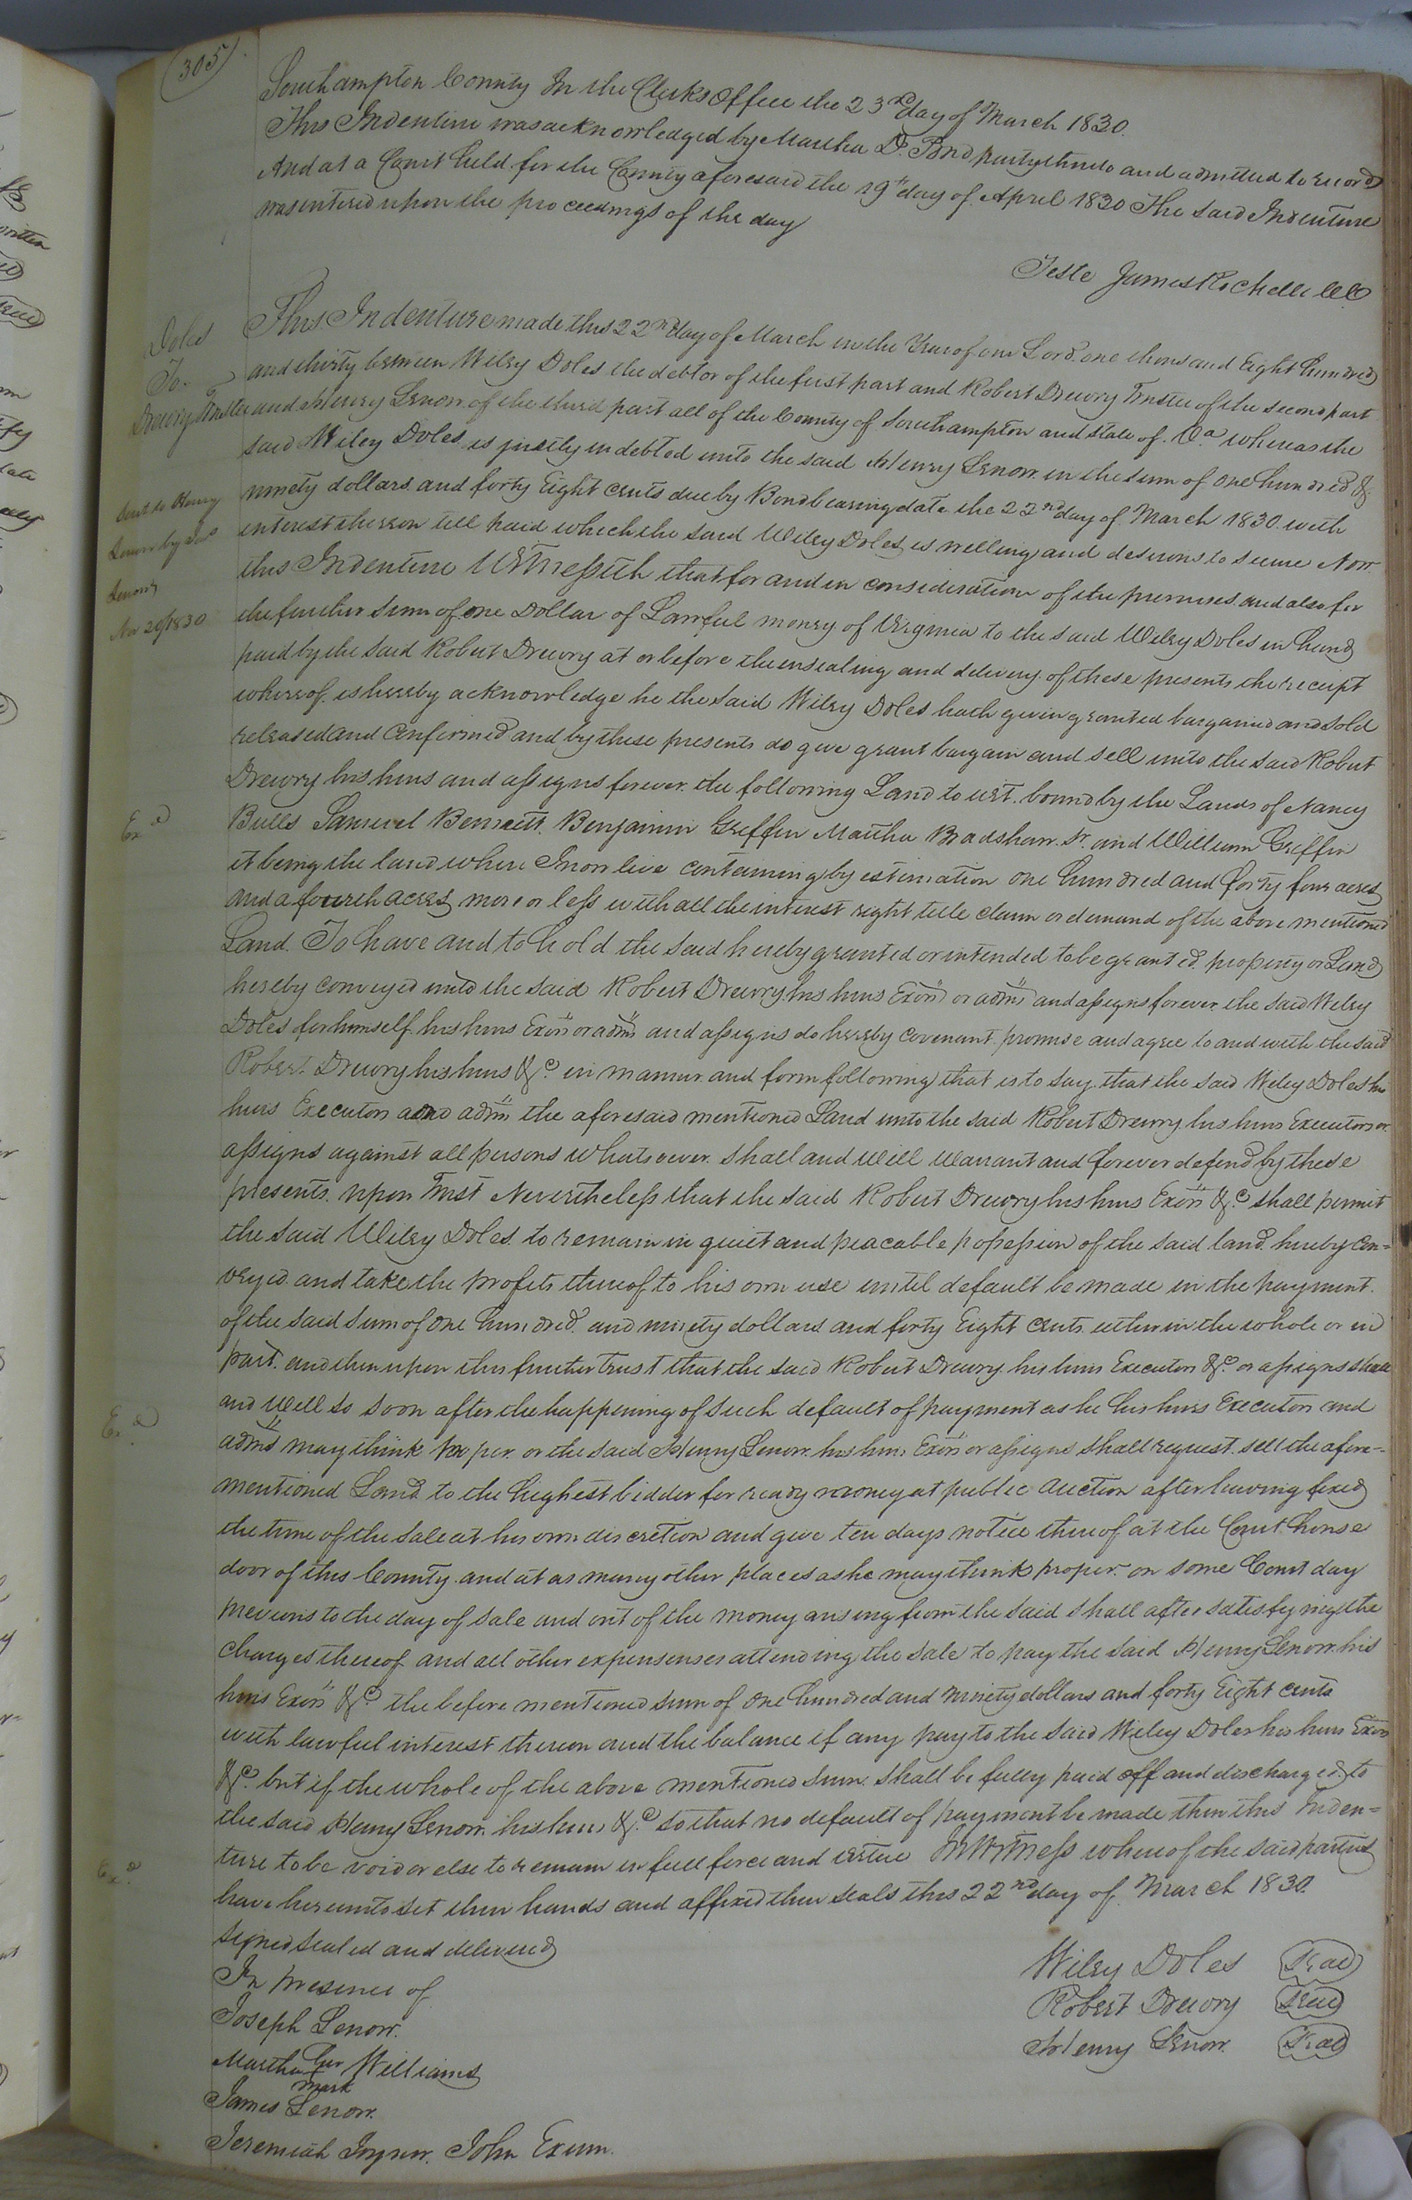 305
Southampton County In the Clerks Office the 23rd day of March 1830.
This Indenture was acknowledged by Martha D. Pond party thereto and admitted to record
And at a Court held for the County aforesaid the 19th day of April 1830 The said Indenture
was entered upon the proceedings of the day
Teste James Rochelle CC
Doles
To
Drewry Trustee
Sent to Henry
Lenow by Jos
Lenow
Nov 29 1830
This Indenture made this 22nd day of March in the Year of our Lord one thousand Eight hundred
and thirty between Wiley Doles the debtor of the first part and Robert Drewry Trustee of the second part
and Henry Lenow of the third part all of the County of Southampton and State of Va whereas the
said Wiley Doles is justly indebted unto the said Henry Lenow in the sum of one hundred &
ninety dollars and forty Eight cents due by Bond bearing date the 22nd day of March 1830 with
interest thereon till paid which the said Wiley Doles is willing and desirous to secure Now
this Indenture Witnesseth that for and in consideration of the premises and also for
the further sum of one Dollar of Lawful money of Virginia to the said Wiley Doles in hand
paid by the said Robert Drewry at or before the ensealing and delivery of these presents the receipt
whereof is hereby acknowledge he the said Wiley Doles hath given granted bargained and sold
released and Confirmed and by these presents do give grant bargain and sell unto the said Robert
Drewry his heirs and assigns forever the following Land to wit. bound by the Lands of Nancy
Bulls Samuel Bennett. Benjamin Griffin Martha Bradshaw Sr. and William Griffin
it being the land where I now live containing by estimation one hundred and forty four acres
and a fourth acres more or less with all the interest right title claim or demand of the above mentioned
Land To have and to hold the said hereby granted or intended to be granted property or Land
hereby conveyed unto the said Robert Drewry his heirs Exors or admrs and assigns forever the said Wiley
Doles for himself his heirs Exors or admrs and assigns do hereby covenant promise and agree to and with the said
Robert Drewry his heirs &c in manner and form following that is to say that the said Wiley Doles his
heirs Executors and admrs the aforesaid mentioned Land unto the said Robert Drewry his heirs Executors or
assigns against all persons whatsoever shall and will warrant and forever defend by these
presents upon Trust Nevertheless that the said Robert Drewry his heirs Exors &c shall permit
the said Wiley Doles to remain in quiet and peacable possession of the said land hereby con=
veyed and take the profits thereof to his own use until default be made in the payment
of the said sum of one hundred and ninety dollars and forty Eight cents either in the whole or in
part. and then upon this further trust that the said Robert Drewry his heirs Executors &c or assigns shall
and will so soon after the happening of such default of payment as he his heirs Executors and
admrs may think proper or the said Henry Lenow his heirs Exors or assigns shall request sell the afore=
mentioned Land to the highest bidder for ready money at public Auction after having fixed
the time of the sale at his own discretion and give ten days notice thereof at the Court house
door of this County and at as many other places as he may think proper on some Court day
previous to the day of sale and out of the money arising from the said shall after satisfying the
charges thereof and all other expensenses attending the sale to pay the said Henry Lenow his
heirs Exors &c the before mentioned sum of one hundred and ninety dollars and forty Eight cents
with lawful interest thereon and the balance if any pay to the said Wiley Doles his heirs Exors
&c. but if the whole of the above mentioned sum shall be fully paid off and discharged to
the said Henry Lenow his heirs &c so that no default of payment be made then this Inden=
ture to be void or else to remain in full force and virtue In Witness whereof the said parties
have hereunto set their hands and affixed their seals this 22nd day of March 1830.
Exd
Exd
Exd
Signed Sealed and delivered
In presence of
Joseph Lenow.
Martha her Williams
mark
James Lenow.
Jeremiah Joyner. John Exum.
Wiley Doles Seal
Robert Drewry Seal
Henry Lenow. Seal